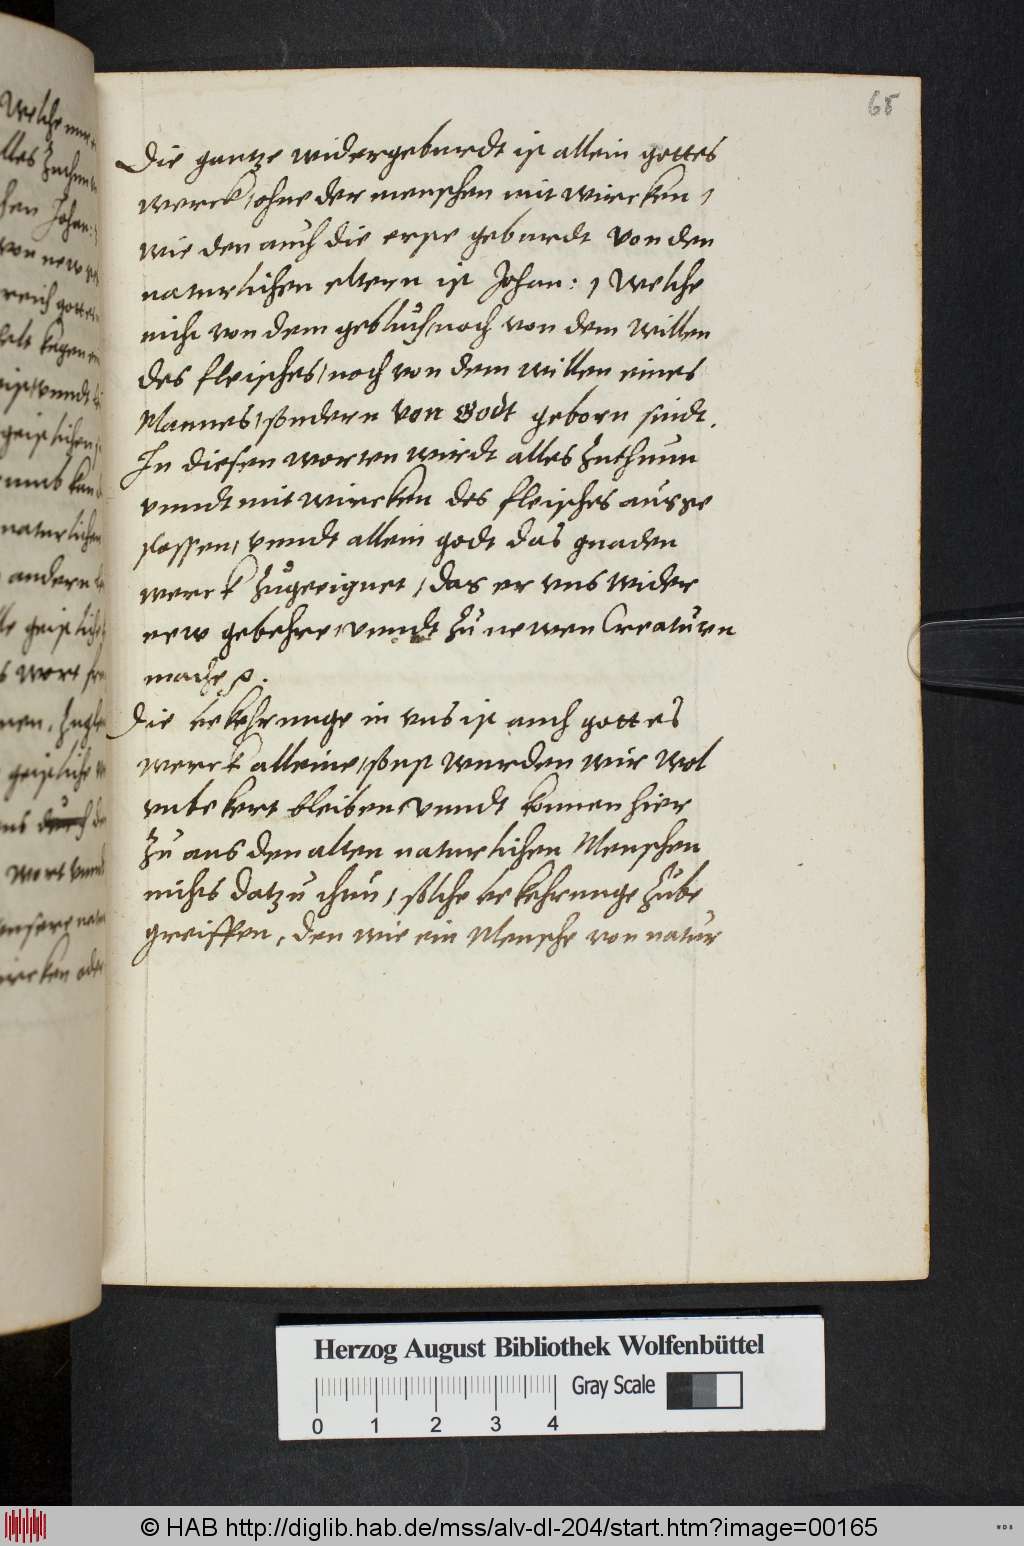 68
Die gantze widergeburdt ist allein gottes
werck / ohne der menschen mit wircken /
wie den auch die erste geburdt von den
naturlichen eltern ist Johan: 1 Welche
nicht von dem gebluth / noch von dem willen
des fleisches / noch von dem willen eines
Mannes / sondern von Godt geborn sindt.
In diesen worten wirdt alles Zuthuun
vnndt mit wircken des fleisches ausge
slossen, vnndt allein godt das gnaden
werck Zugeeignet / das er vns wider
new gebehre, vnndt Zu newen Creaturn
mache
Die bekehrunge in vns ist auch gottes
werck alleine / sonst wurden wir wol
vnbekert bleiben vnndt konnen hier
Zu aus den alten naturlichen Menschen
nichts datzu thun / solche bekehrunge Zube
greiffen, den wie ein Mensche von natur
Welche
alles
Johan:
von new
reich
kegen
vnndt
geistlichen
naturlichen
andern
wort
geistliche
wort vnndt
vnsere natur
wircken oder
Herzog August Bibliothek Wolfenbüttel
Gray Scale
0 1 2 3 4
© HAB http://diglib.hab.de/mss/alv-dl-204/start.htm?image=00165